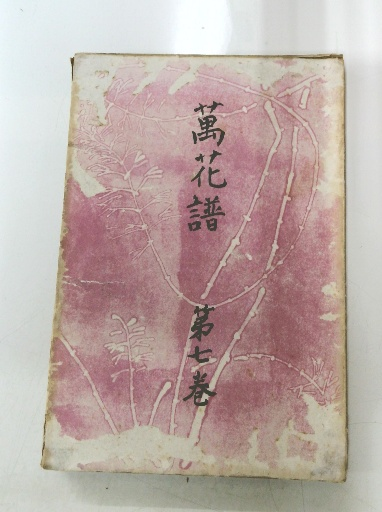 萬花譜
第七卷